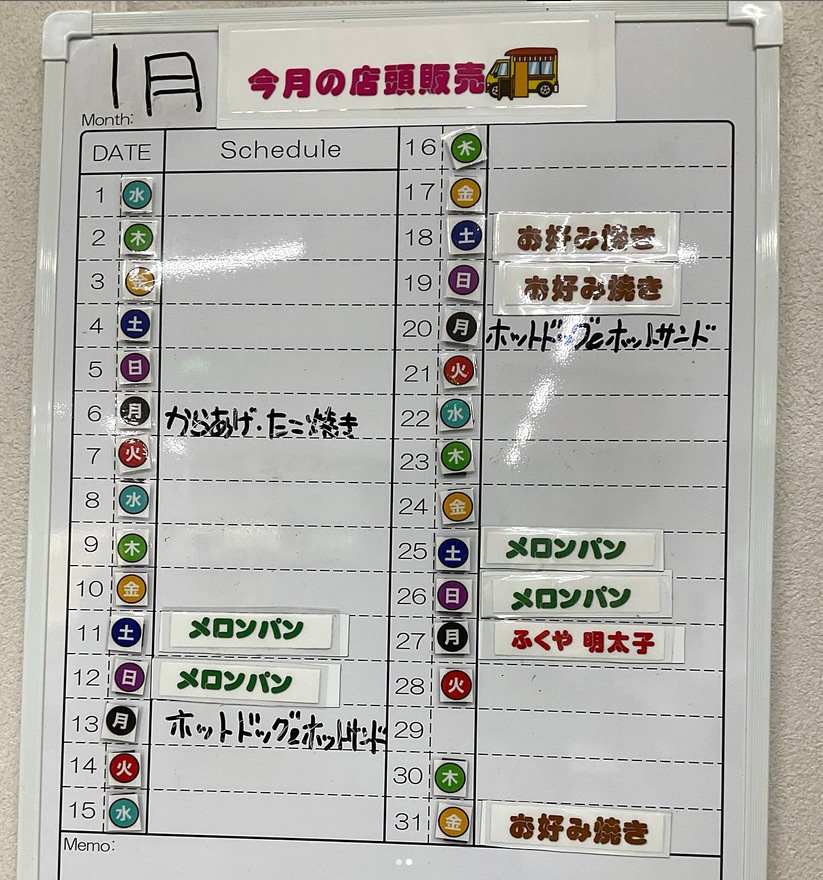 1月
今月の店頭販売
Month:
DATE Schedule
1 水
2 木
3 金
4 土
5 日
6 月 からあげ・たこ焼き
7 火
8 水
9 木
10 金
11 土 メロンパン
12 日 メロンパン
13 月 ホットドッグとホットサンド
14 火
15 水
16 木
17 金
18 土 お好み焼き
19 日 お好み焼き
20 月 ホットドッグとホットサンド
21 火
22 水
23 木
24 金
25 土 メロンパン
26 日 メロンパン
27 月 ふくや 明太子
28 火
29
30 木
31 金 お好み焼き
Memo: